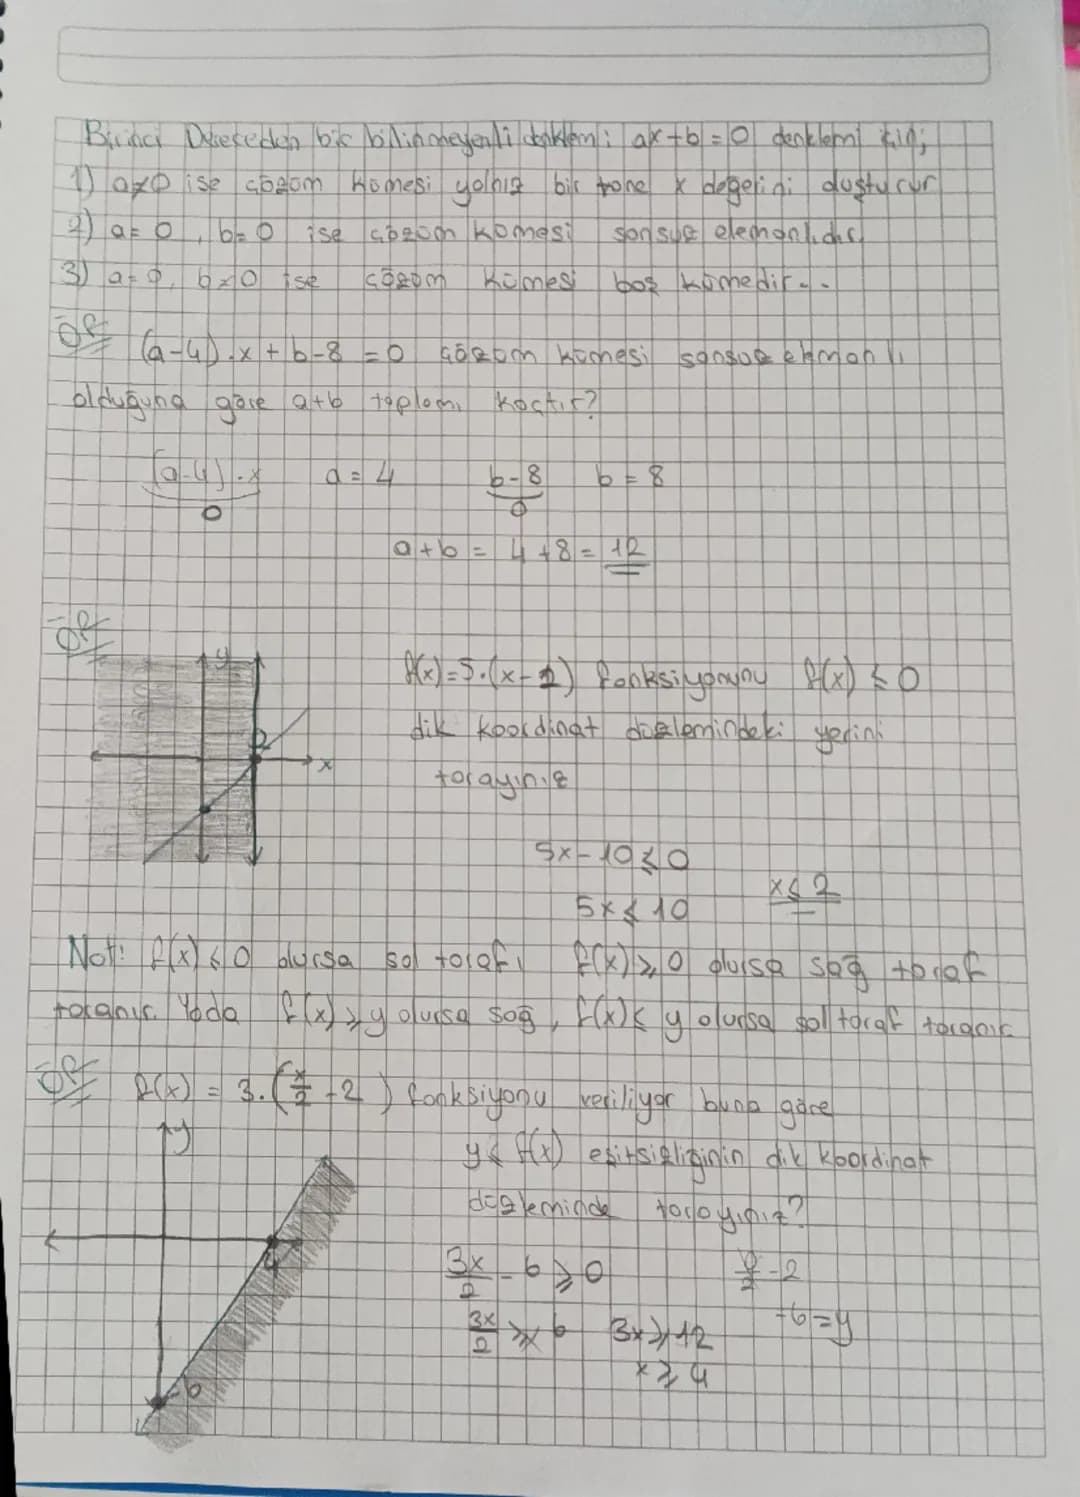 Birinci Dereceden bir bilinmeyenli denklem: ax+b=0 denklemi için;
1) a≠0 ise çözüm kümesi yalnız bir tane x değerini oluşturur
2) a=0, b=0 ise çözüm kümesi sonsuz elemanlıdır.
3) a=0, b≠0 ise çözüm kümesi boş kümedir..
ÖR (a-4).x+b-8=0 çözüm kümesi sonsuz elemanlı
olduğuna göre a+b toplamı kaçtır?
(a-4).x a=4 b-8 b=8
0 0
a+b= 4+8=12
ÖR
y
f(x)=5.(x-2) fonksiyonunu f(x)≤0
dik koordinat düzlemindeki yerini
2
x
tarayınız
5x-10≤0
5x≤10 x≤2
Not: f(x)≤0 olursa sol tarafı f(x)≥0 olursa sağ taraf
taranır. Yada f(x)≥y olursa sağ, f(x)≤y olursa sol taraf taranır
ÖR f(x)=3.(x/2-2) fonksiyonu veriliyor buna göre
y
y≤f(x) eşitsizliğinin dik koordinat
düzleminde tarayınız?
4
3x/2-6≥0 0/2-2
3x/2≥6 3x≥12 -6=y
x≥4
-6